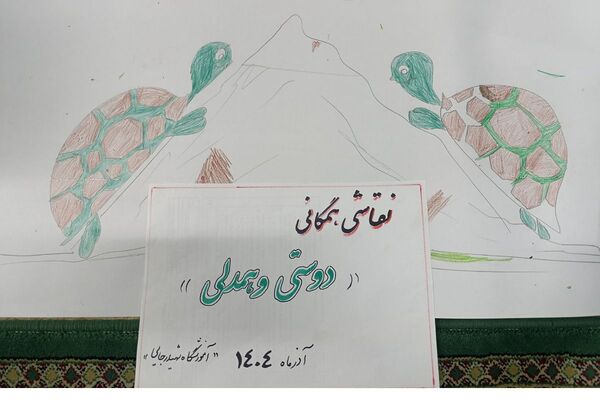 نقاشی همگانی
(( دوستی و همدلی ))
آذرماه ۱۴۰۴ "آموزشگاه شهید رجایی"